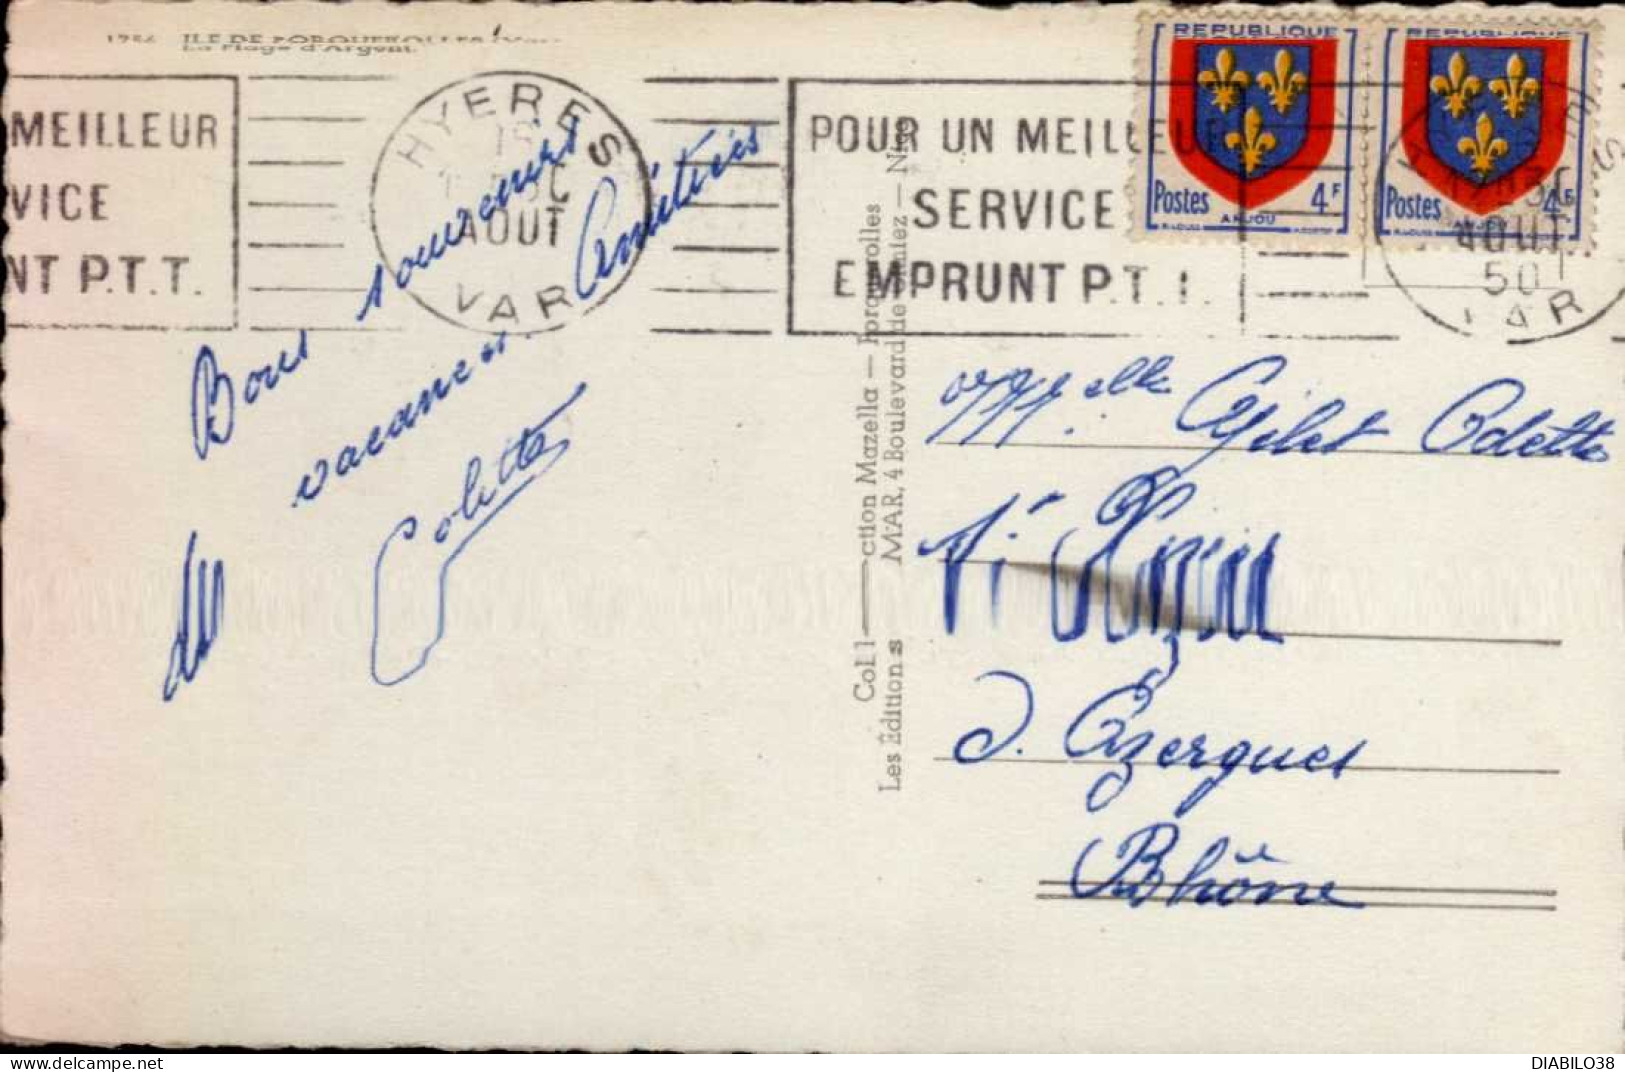 1756 ILE DE PORQUEROLLES (Var)
La Plage d'Argent.
MEILLEUR
VICE
NT P.T.T.
HYERES
AOUT
VAR
POUR UN MEILLEUR
SERVICE
EMPRUNT P.T.T.
REPUBLIQUE
Postes 4F
ANJOU
REPUBLIQUE
Postes 4F
AOUT
50
VAR
Bons souvenirs
de vacances. Amitiés
Colette
Coll——ction Mazella — Porquerolles
Les Éditions MAR, 4 Boulevard de Cimiez — Nice
Melle Gilet Odette
d'Azergues
Rhône
DIABILO38